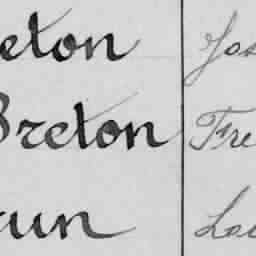 eton Jos
Breton Fre
run Lou